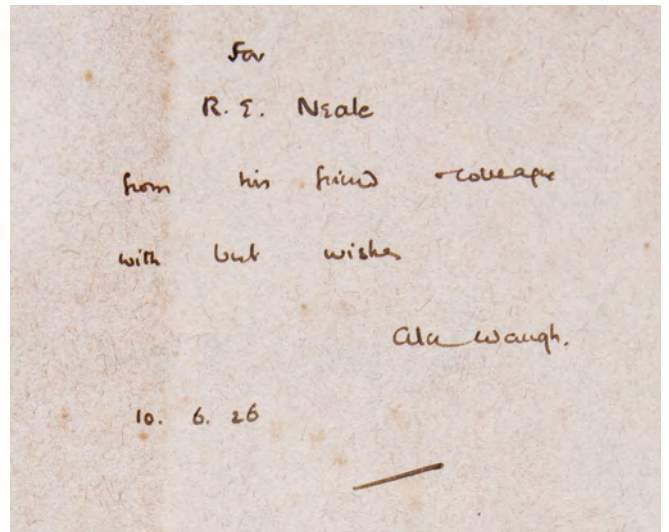 For
R. E. Neale
from his friend & colleague
with best wishes
Alec Waugh.
10. 6. 26